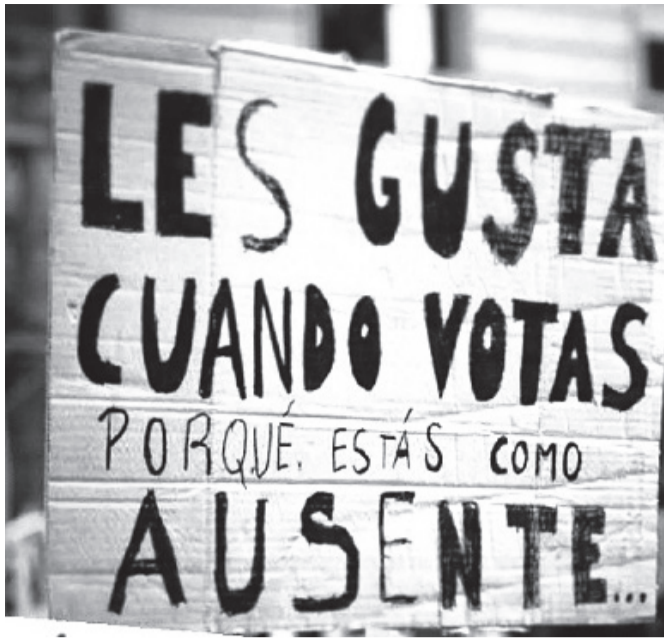 LES GUSTA
CUANDO VOTAS
PORQUÉ. ESTÁS COMO
AUSENTE...